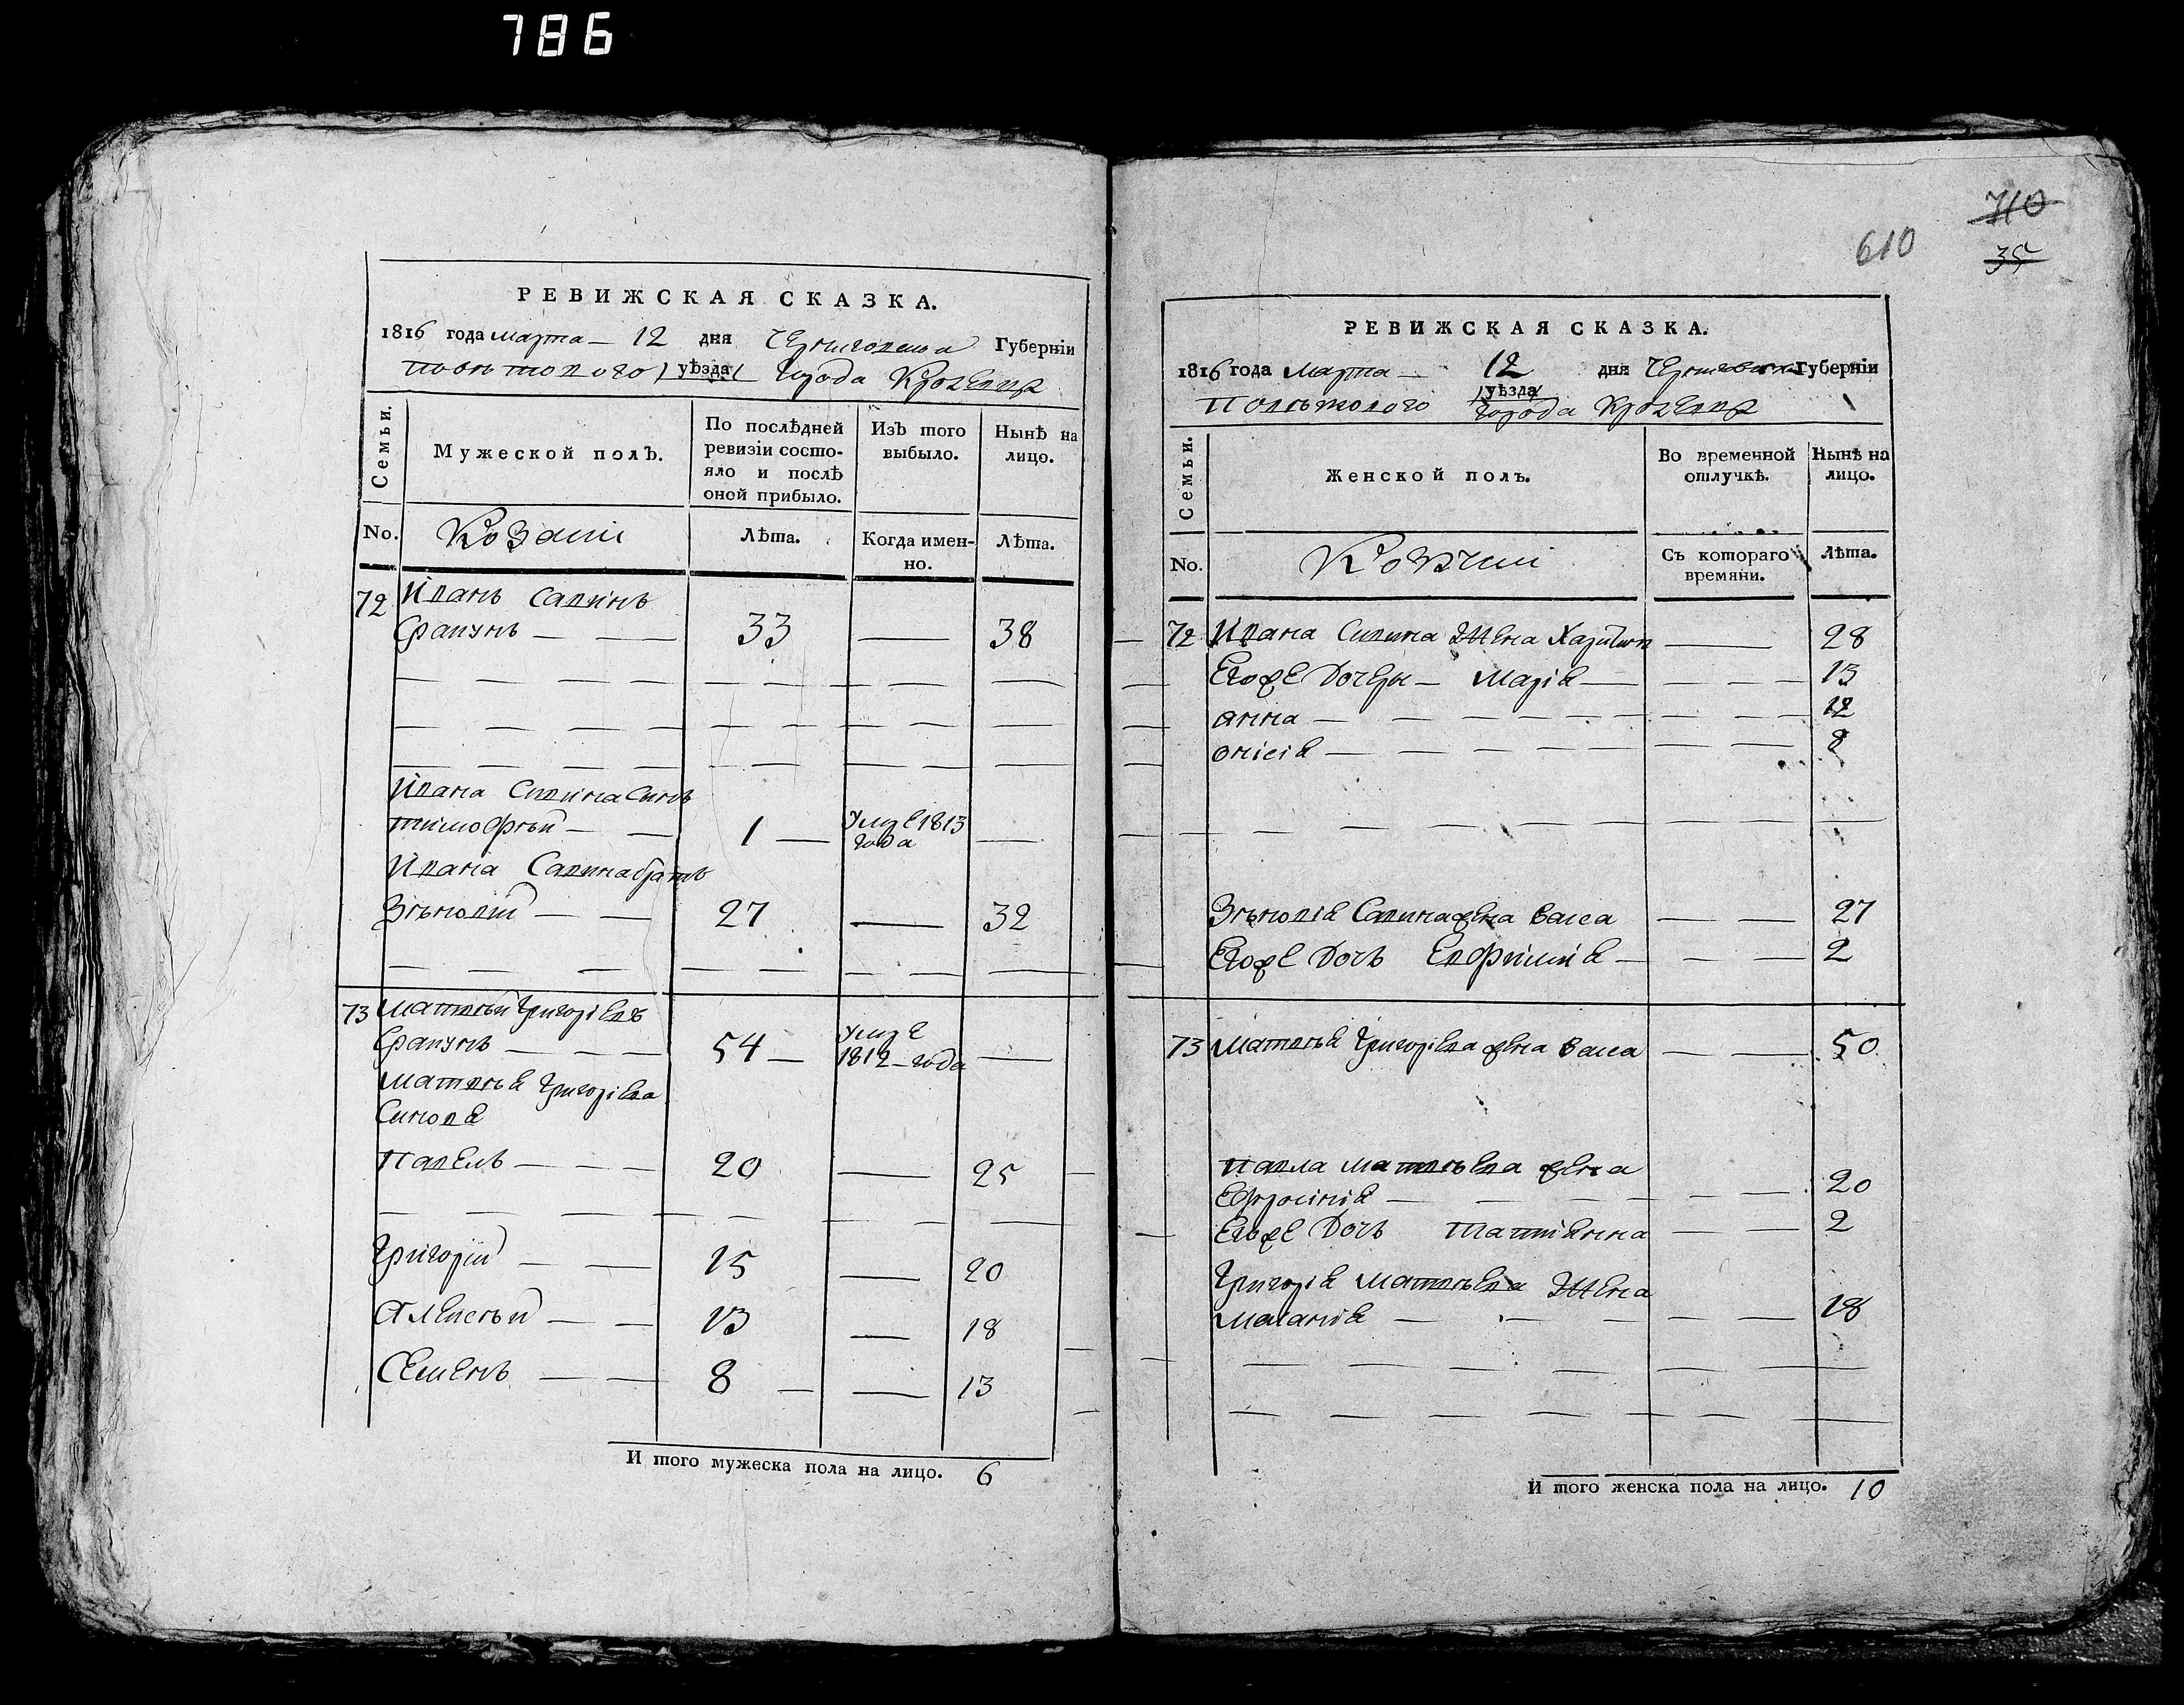 786
РЕВИЖСКАЯ СКАЗКА.
1816 года марта 12 дня Черниговской Губерніи
Поветового уѣзда Города Кролевца
Семьи.
Мужеской полъ.
По послѣдней ревизіи состо-
яло и послѣ
оной прибыло.
Изъ того
выбыло.
Нынѣ на
лицо.
No.
Козаки
Лѣта.
Когда имен-
но.
Лѣта.
72 Иванъ Савинъ
33 — 38
Ивана Савина Синъ
тимофѣй — 1 — Умре 1813
года
Ивана Савина братъ
Зѣновій — 27 — 32
73 Матвѣй Григоріевъ
54 — Умре
1812 года
Матвѣя Григоріева
Синовя
Павелъ — 20 — 25
Григорій — 15 — 20
Алексѣй — 13 — 18
Семенъ — 8 — 13
И того мужеска пола на лицо. 6
710
610
35
РЕВИЖСКАЯ СКАЗКА.
1816 года Марта 12 дня Черниговской Губерніи
Поветового уѣзда
Города Кролевца
Семьи.
Женской полъ.
Во временной
отлучкѣ.
Нынѣ на
лицо.
No.
Козачки
Съ котораго
времяни.
Лѣта.
72 Ивана Савина Жена — 28
Егоже Дочеры — Марія — 13
анна — 12
онісія — 8
Зѣновія Савина жена Васса — 27
Егоже Дочь Евфимія — 2
73 Матвѣя Григоріева жена Васса — 50
Павла Матвѣева жена
Ефросинія — 20
Егоже Дочь Татіянна — 2
Григорія Матвѣева Жена
Маланія — 18
И того женска пола на лицо. 10